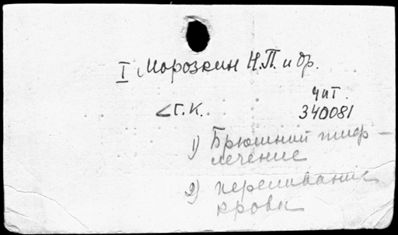 I Морозкин Н.П. и др.
чит.
<Г.К. 340081
1) Брюшной тиф –
лечение
2) переливание
крови